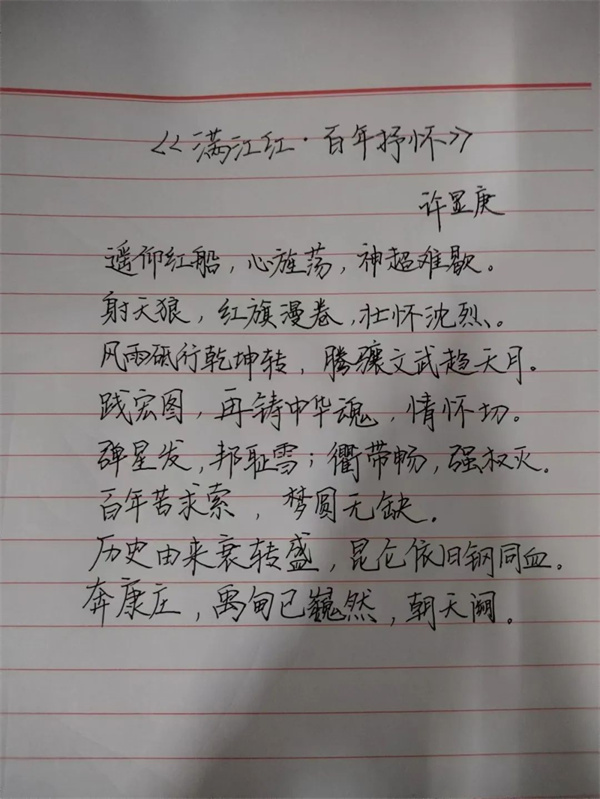 《满江红·百年抒怀》
许显庚
遥仰红船,心旌荡,神超难歇。
射天狼,红旗漫卷,壮怀沈烈、。
风雨砥行乾坤转,腾骧文武趋天月。
践宏图,再铸中华魂,情怀切。
弹星发,邦耻雪;衢带畅,强权灭。
百年苦求索,梦圆无缺。
历史由来衰转盛,昆仑依旧钢同血。
奔康庄,禹甸已巍然,朝天阙。